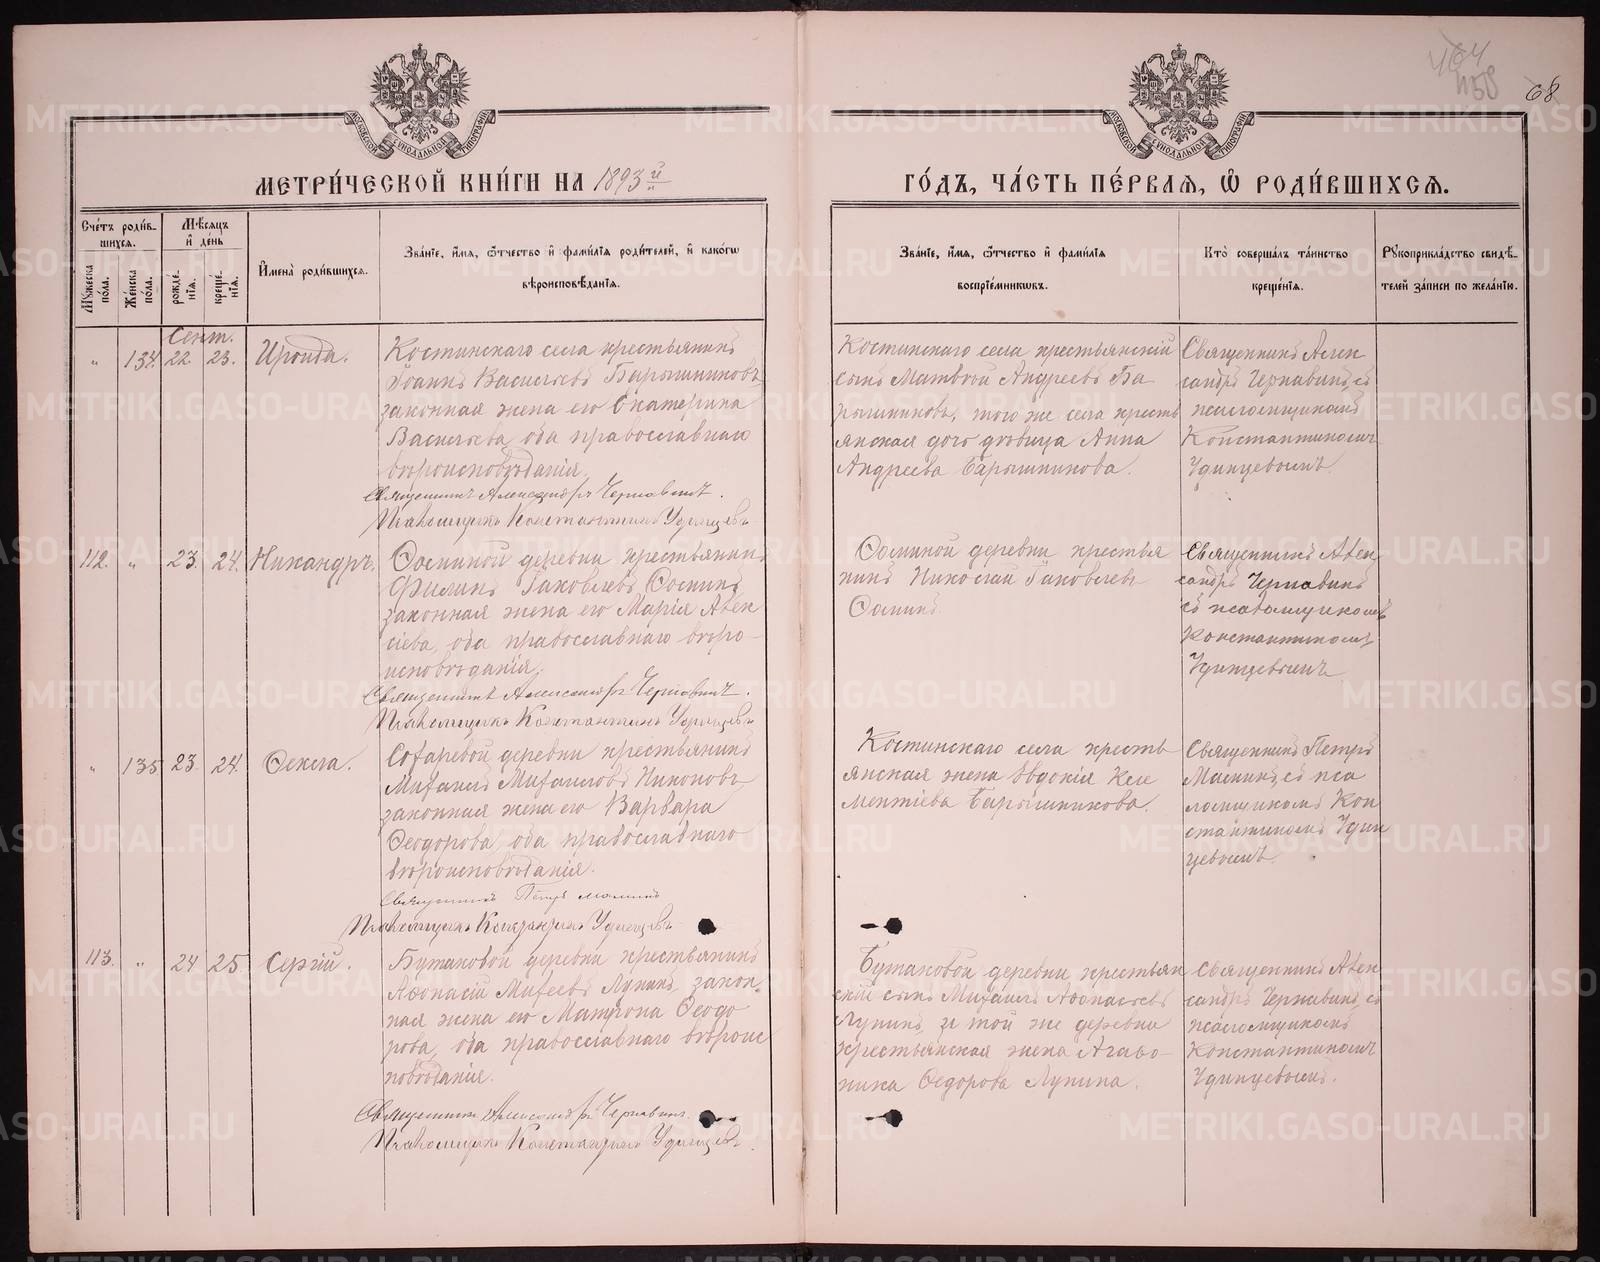 464
458
68
МОСКОВСКОЙ СУНОДАЛЬНОЙ ТИПОГРАФІИ
МОСКОВСКОЙ СУНОДАЛЬНОЙ ТИПОГРАФІИ
МЕТРИ́ЧЕСКОЙ КНИ́ГИ НА 1893 й
ГО́ДЪ, ЧА́СТЬ ПЕ́РВАЯ, Ѿ РОДИ́ВШИХСЯ.
Сче́тъ роди́в-
шихся.
Мѣ́сяцъ
и де́нь
Му́жеска
по́ла.
Же́нска
по́ла.
рожде́-
нія.
креще́-
нія.
Имена̀ роди́вшихся.
Зва́ніе, и́мя, ѻ́тчество и фами́лія роди́телей, и како́гѡ
вѣроисповѣ́данія.
Зва́ніе, и́мя, ѻ́тчество и фами́лія
воспріе́мникѡвъ.
Кто̀ соверша́лъ та́инство
креще́нія.
Рꙋкоприкла́дство свидѣ́-
телей за́писи по жела́нію.
Сент.
„ 134. 22. 23. Ираида.
Костинскаго села крестьянинъ
Іоаннъ Васильевъ Барышниковъ,
законная жена его Екатерина
Васильева, оба православнаго
вѣроисповѣданія.
Священникъ Александръ Чернавинъ.
Псаломщикъ Константинъ Удинцевъ
Костинскаго села крестьянскій
сынъ Матвѣй Андреевъ Ба
рышниковъ, того же села кресть
янская дочь дѣвица Анна
Андреева Барышникова.
Священникъ Алек
сандръ Чернавинъ съ
псаломщикомъ
Константиномъ
Удинцевымъ.
112. „ 23. 24. Никандръ.
Ѳоминой деревни крестьянинъ
Филипъ Іаковлевъ Ѳоминъ
законная жена его Марія Алек
сіева, оба православнаго вѣро-
исповѣданія.
Священникъ Александръ Чернавинъ.
Псаломщикъ Константинъ Удинцевъ
Ѳоминой деревни крестья
нинъ Николай Іаковлевъ
Ѳоминъ.
Священникъ Алек
сандръ Чернавинъ
съ псаломщикомъ
Константиномъ
Удинцевымъ.
„ 135 23. 24. Ѳекла.
Сохаревой деревни крестьянинъ
Михаилъ Михаиловъ Никоновъ,
законная жена его Варвара
Ѳеодорова, оба православнаго
вѣроисповѣданія.
Священникъ Петръ Маминъ
Псаломщикъ Константинъ Удинцевъ
Костинскаго села кресть
янская жена Евдокія Кле
ментіева Барышникова.
Священникъ Петръ
Маминъ, съ пса
ломщикомъ Кон
стантиномъ Удин
цевымъ.
113. „ 24 25. Сергій.
Бутаковой деревни крестьянинъ
Аѳонасій Михеевъ Лупинъ, закон-
ная жена его Матрона Ѳеодо
рова, оба православнаго вѣроис
повѣданія.
Священникъ Александръ Чернавинъ.
Псаломщикъ Константинъ Удинцевъ.
Бутаковой деревни крестьян
скій сынъ Михаилъ Аѳонасьевъ
Лупинъ, и той же деревни
крестьянская жена Агаѳо-
ника Ѳедорова Лупина.
Священникъ Алек
сандръ Чернавинъ, съ
псаломщикомъ
Константиномъ
Удинцевымъ.